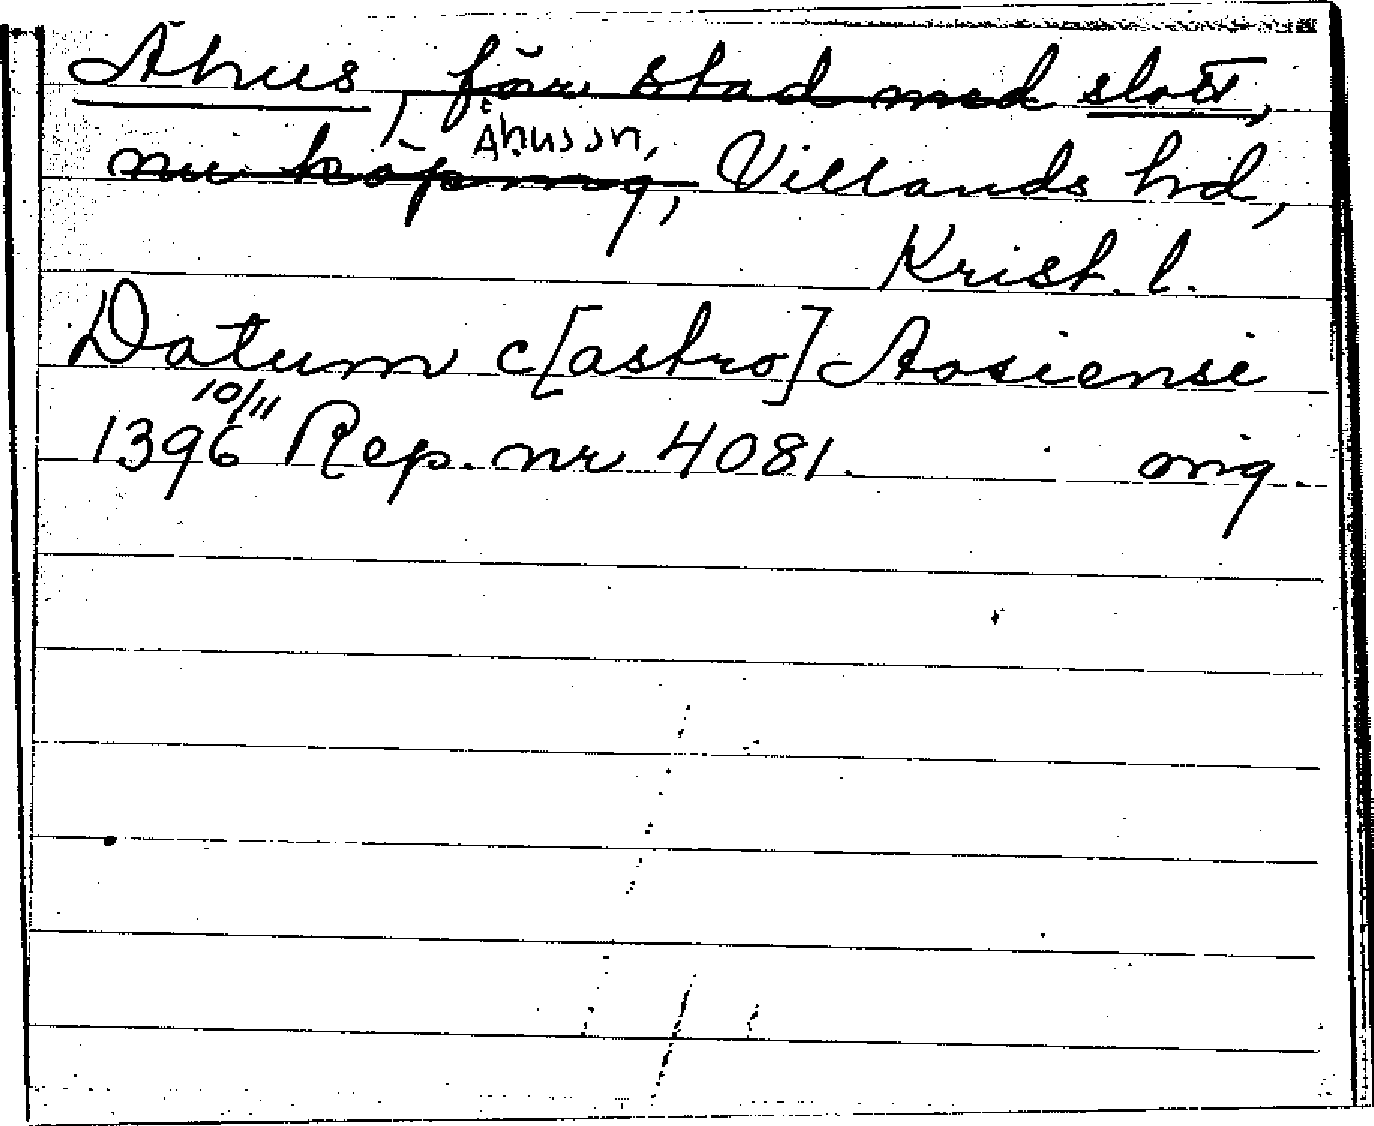 Åhus, förr stad med slott,
nu köping, Åhus sn, Villands hd,
Krist. l.
Datum c[astro] Aosiensi
1396 10/11 Rep. nr 4081. orig.